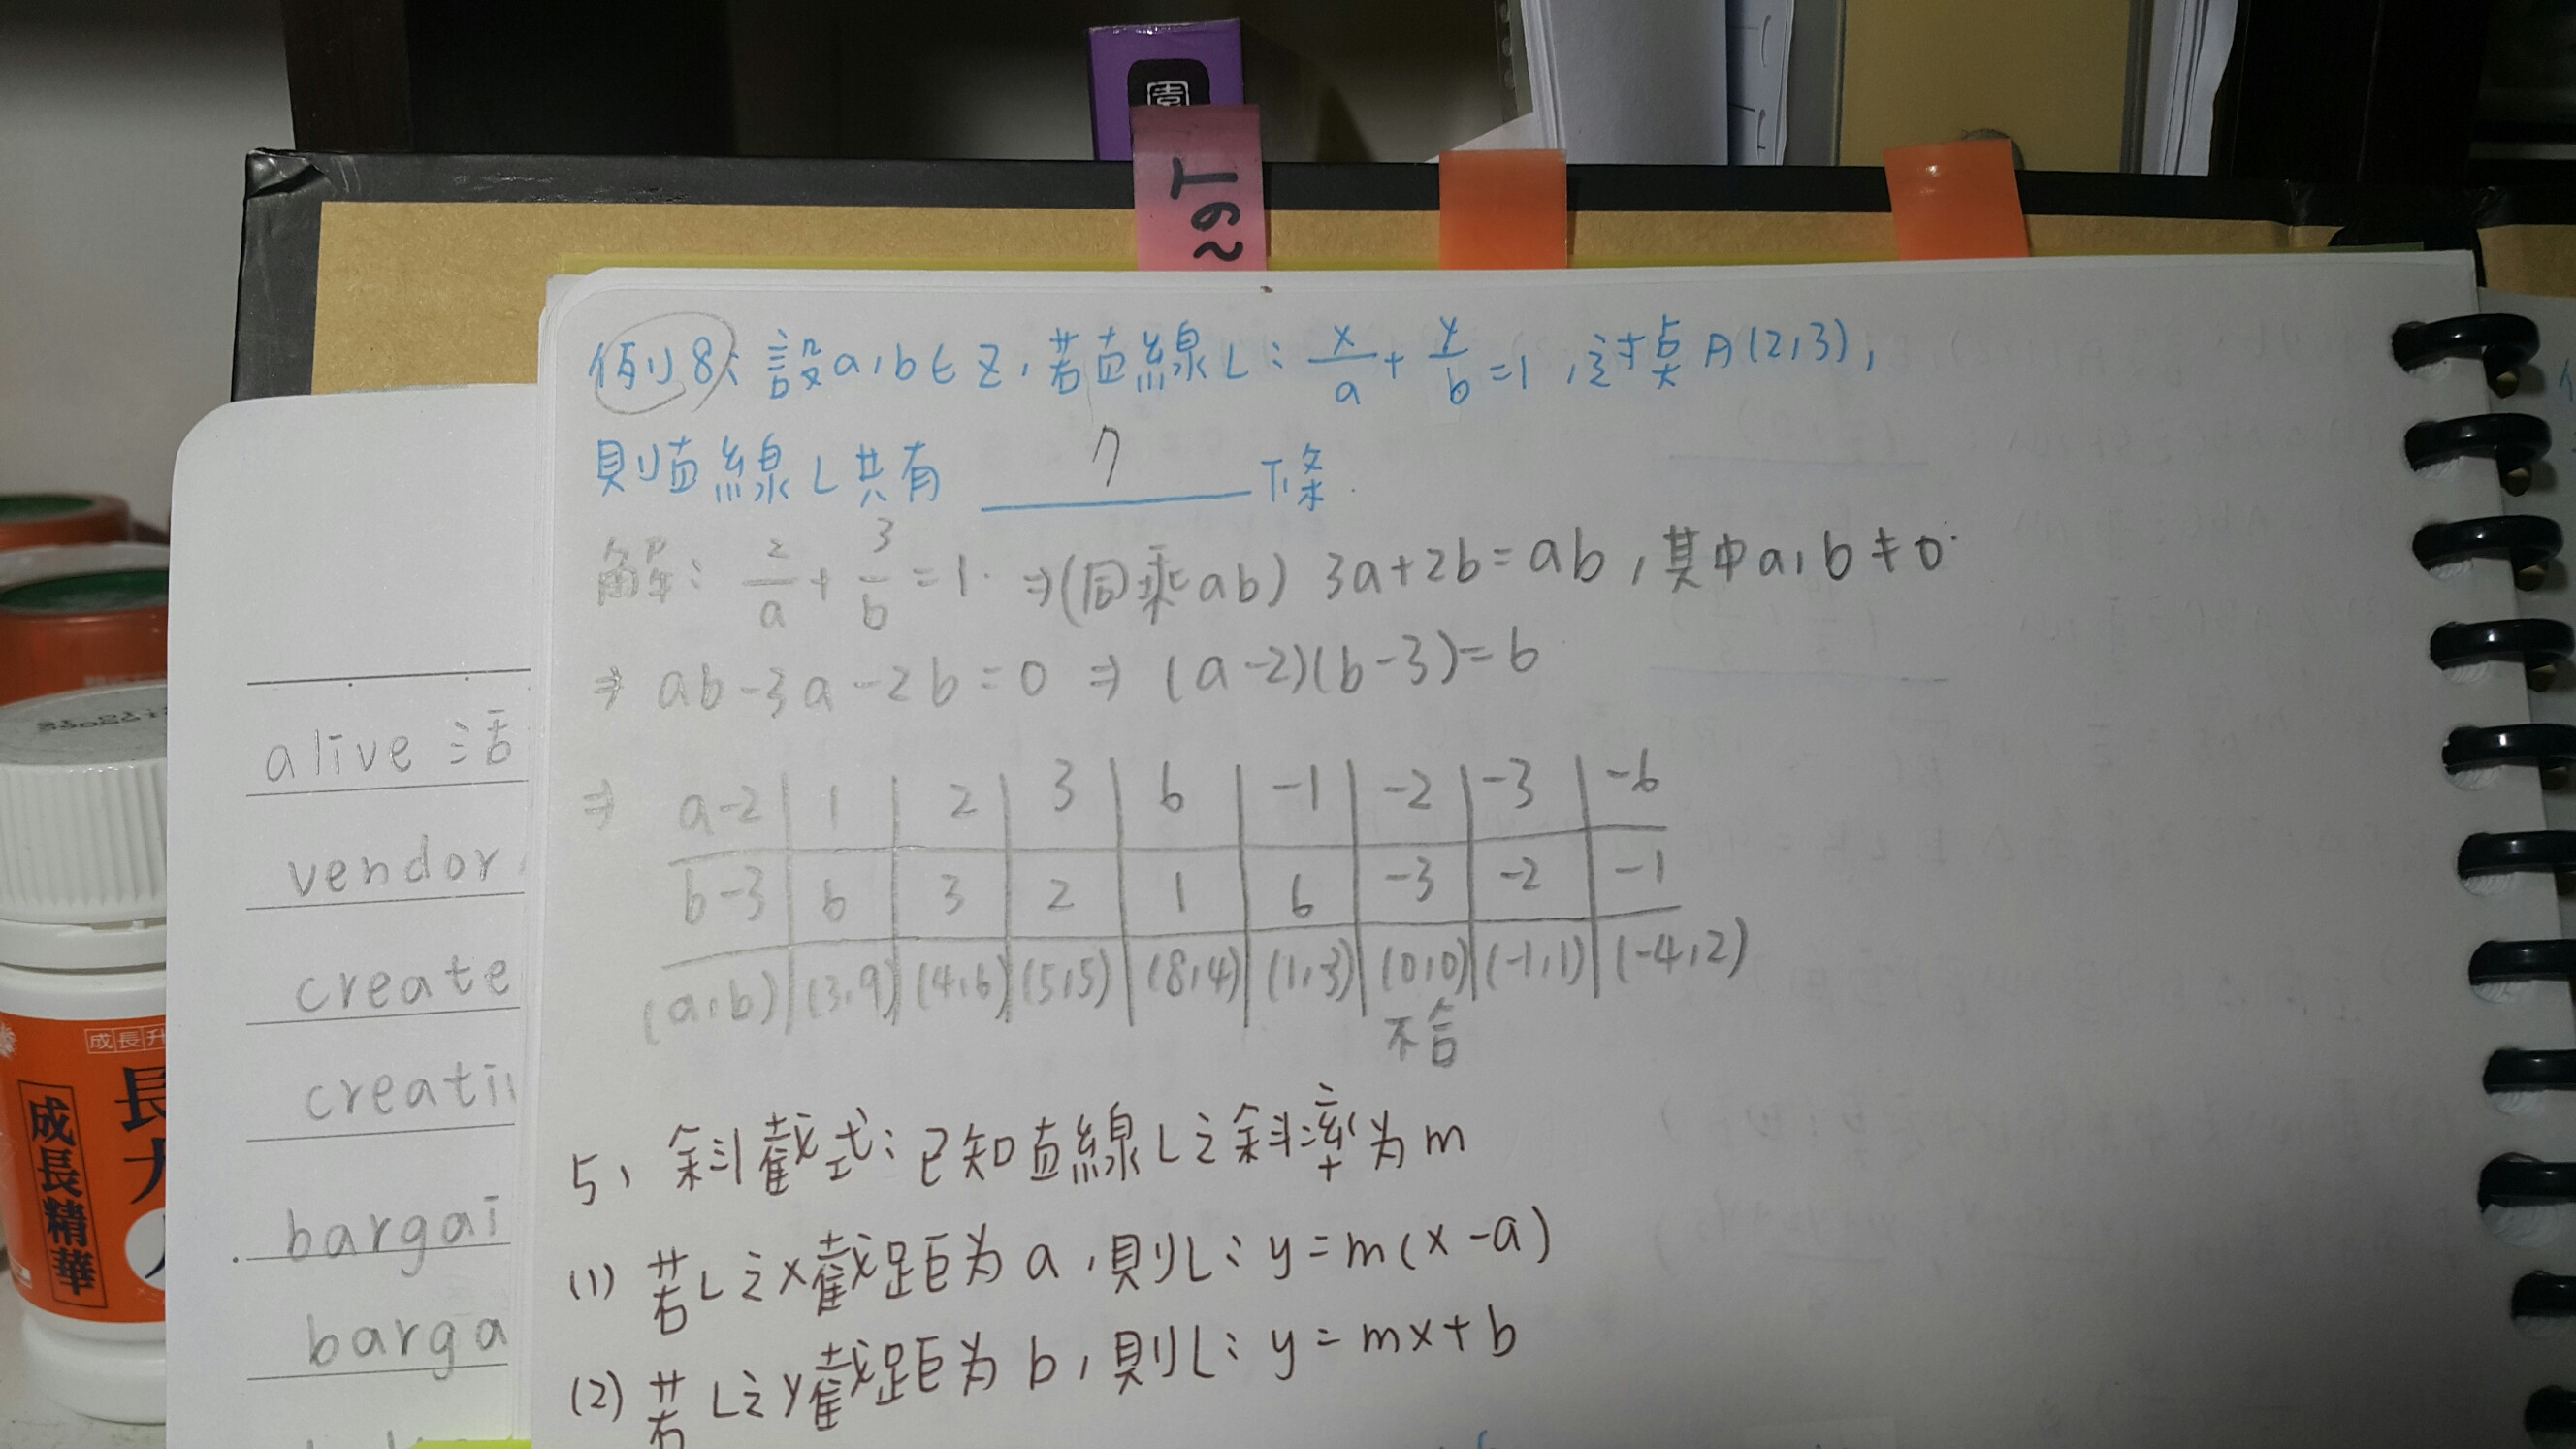 園
~29T
例8: 設a,b∈Z,若直線L: x/a + y/b =1,过点A(2,3),
則直線L共有 7 條.
解: 2/a + 3/b =1. ⇒(同乘ab) 3a+2b=ab,其中a,b≠0.
⇒ ab-3a-2b=0 ⇒ (a-2)(b-3)=6
⇒ a-2 | 1 | 2 | 3 | 6 | -1 | -2 | -3 | -6
b-3 | 6 | 3 | 2 | 1 | 6 | -3 | -2 | -1
(a,b) | (3,9) | (4,6) | (5,5) | (8,4) | (1,-3) | (0,0) | (-1,1) | (-4,2)
不合
5、斜截式:已知直線L之斜率为m
(1) 若L之x截距为a,則L: y=m(x-a)
(2) 若L之y截距为b,則L: y=mx+b
alive 活
vendor
create
creati
bargai
barga
成長升
長
大
人
成長精華